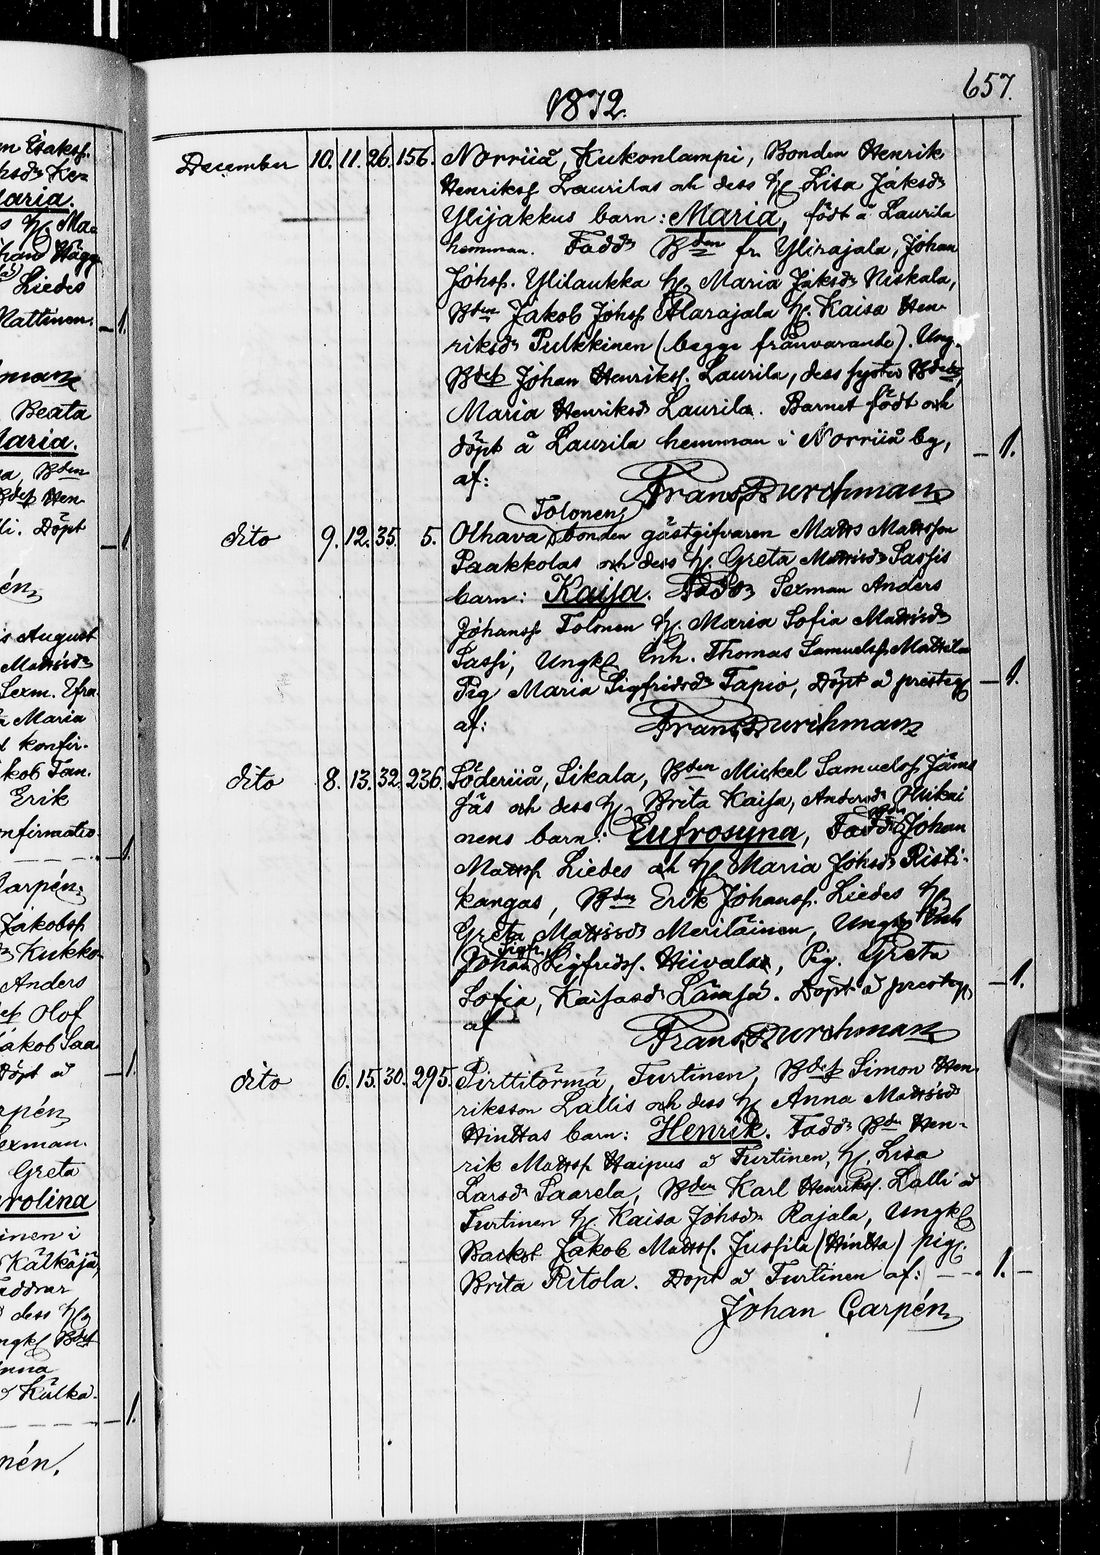 en Esaksf.
hsdr Ke=
Maria.
s hu Ma=
han Hägg
Liedes
Mattinen.
1.
Beata
Maria.
a, Bden
Bdef Hen
li. Döpt
1
én
is August
Mattsdr
Sexm. Efra
a Maria
d konfir-
kob Tan.
Erik
nfirmatio-
1.
Carpén
Jakobsf
Kukko-
Anders
def Olof
Jakob Saa
Döpt å
1
rpén
exman.
Greta
arolina
inen i
Kälkäjä,
addrar
dess hu
ngkl Bdef
nna
Kälkä.
1.
nén.
657.
1872.
December 10. 11. 26. 156. Norriiå, Kukonlampi, Bonden Henrik
Henriksf Laurilas och dess hu Lisa Jaksdr
Ylijakkus barn: Maria, född å Laurila
hemman. Faddr Bden fr. Ylirajala, Johan
Johsf. Ylilaukka hu Maria Jaksdr Niskala,
Bden Jakob Johsf Alarajala hu. Kaisa Hen-
riksdr Pulkkinen (begge frånvarande). Ung.
Bdef Johan Henriksf. Laurila, dess syster Bdedr,
Maria Henriksdr Laurila. Barnet född och
döpt å Laurila hemman i Norriiå by, 1.
af: Frans Durchman
Tolonen
dito 9. 12. 35. 5. Olhava bonden gästgifvaren Matts Mattsson
Paakkolas och dess hu Greta Mattsdr Sassis
barn: Kaisa. Faddr Sexman Anders
Johansf Tolonen hu Maria Sofia Mattsdr
Sassi, Ungkl Inh. Thomas Samuelsf Mattila
Pig Maria Sigfridsdr Tapio, Döpt å prestg 1.
af: Frans Durchman
dito 8. 13. 32. 236. Söderiiå, Sikala, Bden Mickel Samuelsf Jäms
säs och dess hu Brita Kaisa, Andersdr Mikai
nens barn: Eufrosyna, Faddr Bden Johan
Mattsf Liedes och hu Maria Johsdr Risti-
kangas, Bden Erik Johansf. Liedes hu
Greta Mattsdr Meriläinen, Ungkl Inh
Sigfr.
Johan Sigfridsf. Hiivala, Pig. Greta
Sofia, Kaisasdr Lämsä. Döpt å prestg 1.
af Frans Durchman
dito 6. 15. 30. 295. Pirttitörmä, Turtinen, Bdef Simon Hen
riksson Lallis och dess hu Anna Mattsdr
Hinttas barn: Henrik. Faddr Bdn Hen-
rik Mattsf Haipus å Turtinen, hu Lisa
Larsdr Saarela, Bden Karl Henriksf. Lalli å
Turtinen hu Kaisa Johsdr Rajala, Ungkl
Backst Jakob Mattsf. Jussila (Hintta) pig.
Brita Ritola. Döpt å Turtinen af: 1.
Johan Carpén